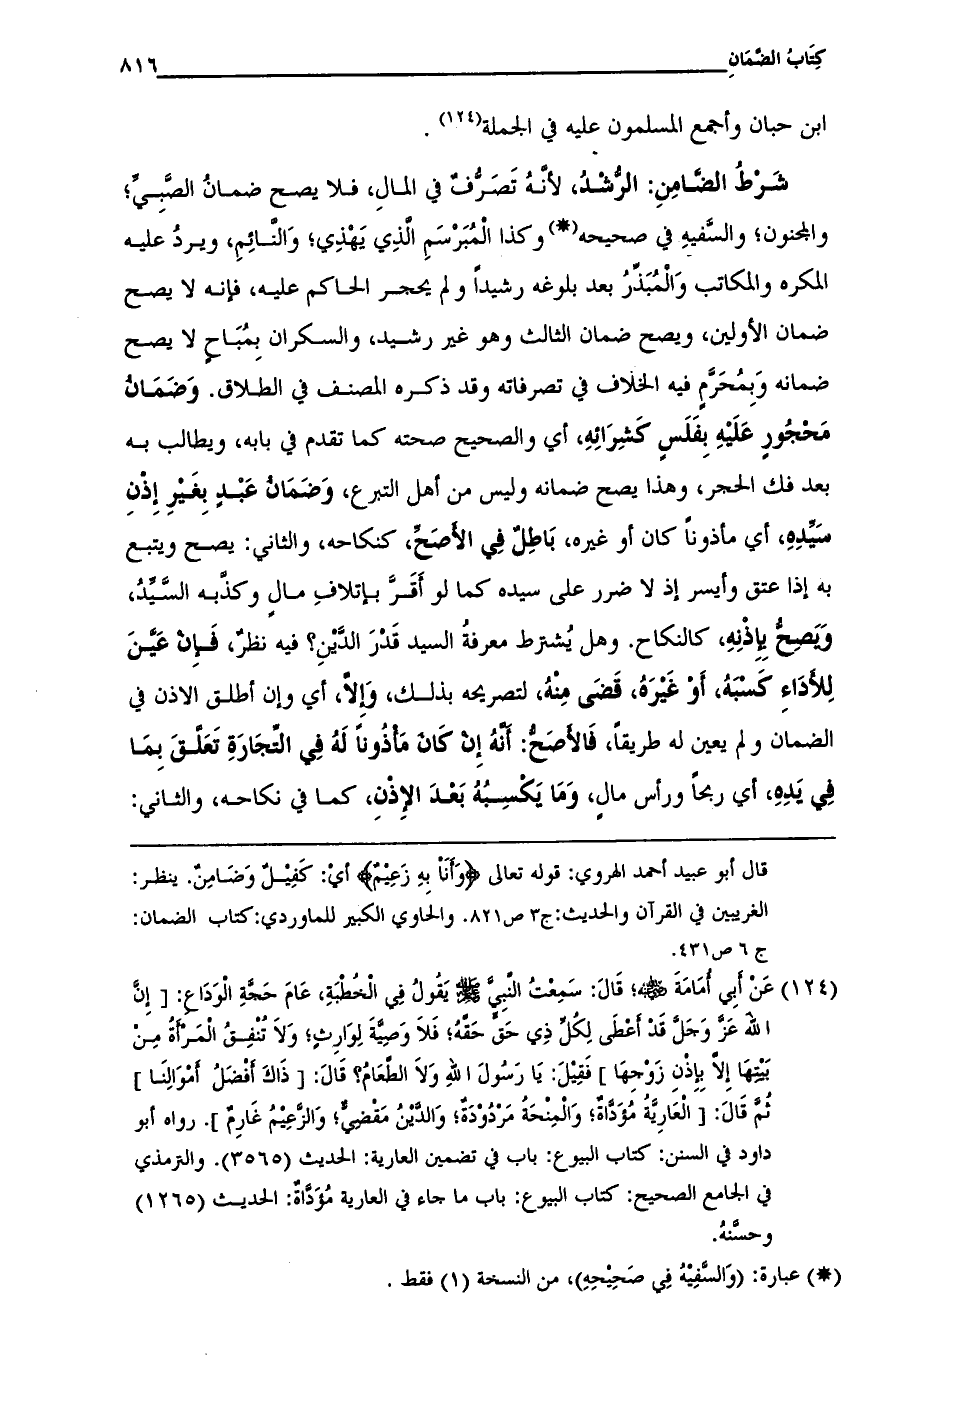 كِتَابُ الضَّمَانِ ٨١٦
ابن حبان وأجمع المسلمون عليه في الجملة(١٢٤) .
شَرْطُ الضَّامِنِ: الرُّشْدُ، لأنَّهُ تَصَرُّفٌ في المالِ، فلا يصح ضمانُ الصَّبِيِّ؛
والمجنون؛ والسَّفيهِ في صحيحه(*) وكذا الْمُبَرْسَمِ الَّذِي يَهْذِي؛ وَالنَّائِمِ، ويردُ عليه
المكره والمكاتب وَالْمُبَذِّرُ بعد بلوغه رشيداً ولم يحجر الحاكم عليه، فإنه لا يصح
ضمان الأولين، ويصح ضمان الثالث وهو غير رشيد، والسكران بِمُبَاحٍ لا يصح
ضمانه وَبِمُحَرَّمٍ فيه الخلاف في تصرفاته وقد ذكره المصنف في الطلاق. وَضَمَانُ
مَحْجُورٍ عَلَيْهِ بِفَلَسٍ كَشِرَائِهِ، أي والصحيح صحته كما تقدم في بابه، ويطالب به
بعد فك الحجر، وهذا يصح ضمانه وليس من أهل التبرع، وَضَمَانُ عَبْدٍ بِغَيْرِ إِذْنِ
سَيِّدِهِ، أي مأذوناً كان أو غيره، بَاطِلٌ فِي الأَصَحِّ، كنكاحه، والثاني: يصح ويتبع
به إذا عتق وأيسر إذ لا ضرر على سيده كما لو أَقَرَّ بإتلافِ مالٍ وكذَّبه السَّيِّدُ،
وَيَصِحُّ بِإِذْنِهِ، كالنكاح. وهل يُشترط معرفةُ السيد قَدْرَ الدَّيْنِ؟ فيه نظرٌ، فَإِنْ عَيَّنَ
لِلأَدَاءِ كَسْبَهُ، أَوْ غَيْرَهُ، قَضَى مِنْهُ، لتصريحه بذلك، وَإِلاَّ، أي وإن أطلق الاذن في
الضمان ولم يعين له طريقاً، فَالأَصَحُّ: أَنَّهُ إِنْ كَانَ مَأْذُوناً لَهُ فِي التِّجَارَةِ تَعَلَّقَ بِمَا
فِي يَدِهِ، أي ربحاً ورأس مالٍ، وَمَا يَكْسِبُهُ بَعْدَ الإِذْنِ، كما في نكاحه، والثاني:
قال أبو عبيد أحمد الهروي: قوله تعالى ﴿وَأَنَاْ بِهِ زَعِيْمٌ﴾ أيْ: كَفِيْلٌ وَضَامِنٌ. ينظر:
الغريبين في القرآن والحديث:ج٣ ص٨٢١. والحاوي الكبير للماوردي:كتاب الضمان:
ج ٦ ص٤٣١.
(١٢٤) عَنْ أَبِي أُمَامَةَ ﷺ؛ قَالَ: سَمِعْتُ النَّبِيَّ ﷺ يَقُولُ فِي الْخُطْبَةِ، عَامَ حَجَّةِ الْوَدَاعِ: [ إِنَّ
اللهَ عَزَّ وَجَلَّ قَدْ أَعْطَى لِكُلِّ ذِي حَقٍّ حَقَّهُ؛ فَلاَ وَصِيَّةَ لِوَارِثٍ؛ وَلاَ تُنْفِقُ الْمَرْأَةُ مِنْ
بَيْتِهَا إِلاَّ بِإِذْنِ زَوْجِهَا ] فَقِيْلَ: يَا رَسُولَ اللهِ وَلاَ الطَّعَامُ؟ قَالَ: [ ذَاكَ أَفْضَلُ أَمْوَالِنَا ]
ثُمَّ قَالَ: [ الْعَارِيَّةُ مُؤَدَّاةٌ؛ وَالْمِنْحَةُ مَرْدُودَةٌ؛ وَالدَّيْنُ مَقْضِيٌّ؛ وَالزَّعِيْمُ غَارِمٌ ]. رواه أبو
داود في السنن: كتاب البيوع: باب في تضمين العارية: الحديث (٣٥٦٥). والترمذي
في الجامع الصحيح: كتاب البيوع: باب ما جاء في العارية مُؤَدَّاةٌ: الحديث (١٢٦٥)
وحسَّنهُ.
(*) عبارة: (وَالسَّفِيْهُ فِي صَحِيْحِهِ)، من النسخة (١) فقط .